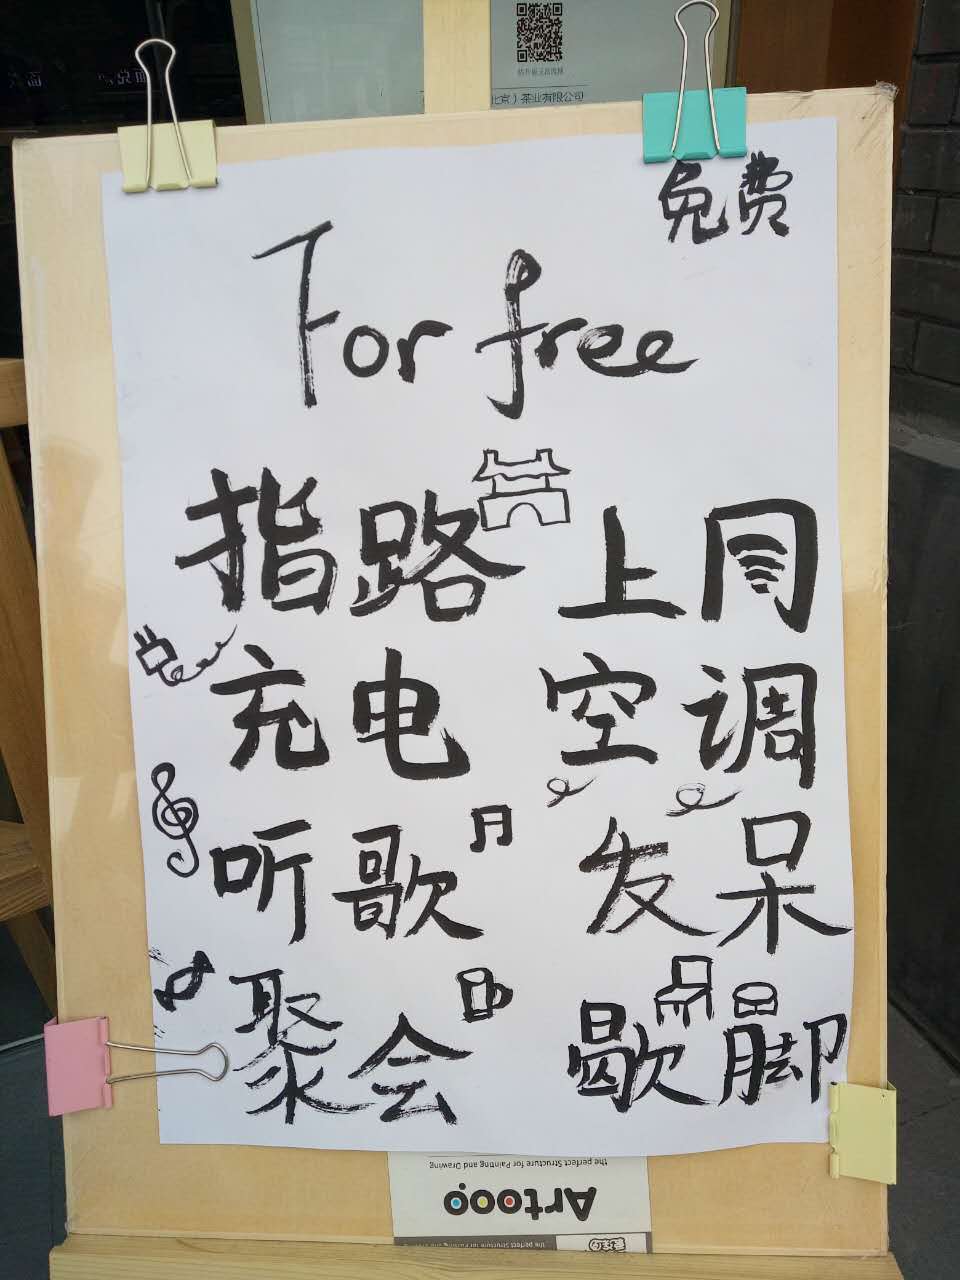 北京）茶业有限公司
免费
For free
指路 上网
充电 空调
听歌 发呆
聚会 歇脚
the perfect Structure for Painting and Drawing
Artoop